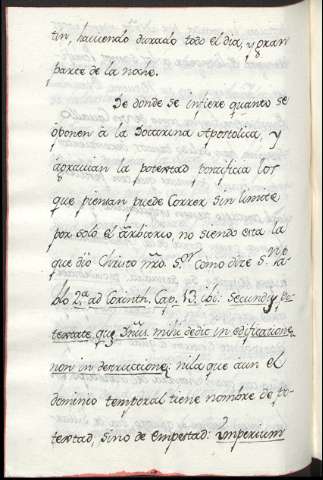 tin, haciendo durado todo el dia, y gran
parte de la noche.
De donde se infiere quanto se
oponen à la Doctrina Apostolica, y
agravian la potestad pontificia los
que piensan puede Correr sin limite
por solo el arbitrio, no siendo esta la
que dio Christo nro. Sor. como dize Sn. Pa-
blo 2ª. ad Corinth. Cap. 13. ibi: secundum po-
testatẽ, quã Dñus. mihi dedit in edificationẽ,
non in destructionẽ: ni la que aun el
dominio temporal tiene nombre de po-
testad, sino de tempestad: Ymperium